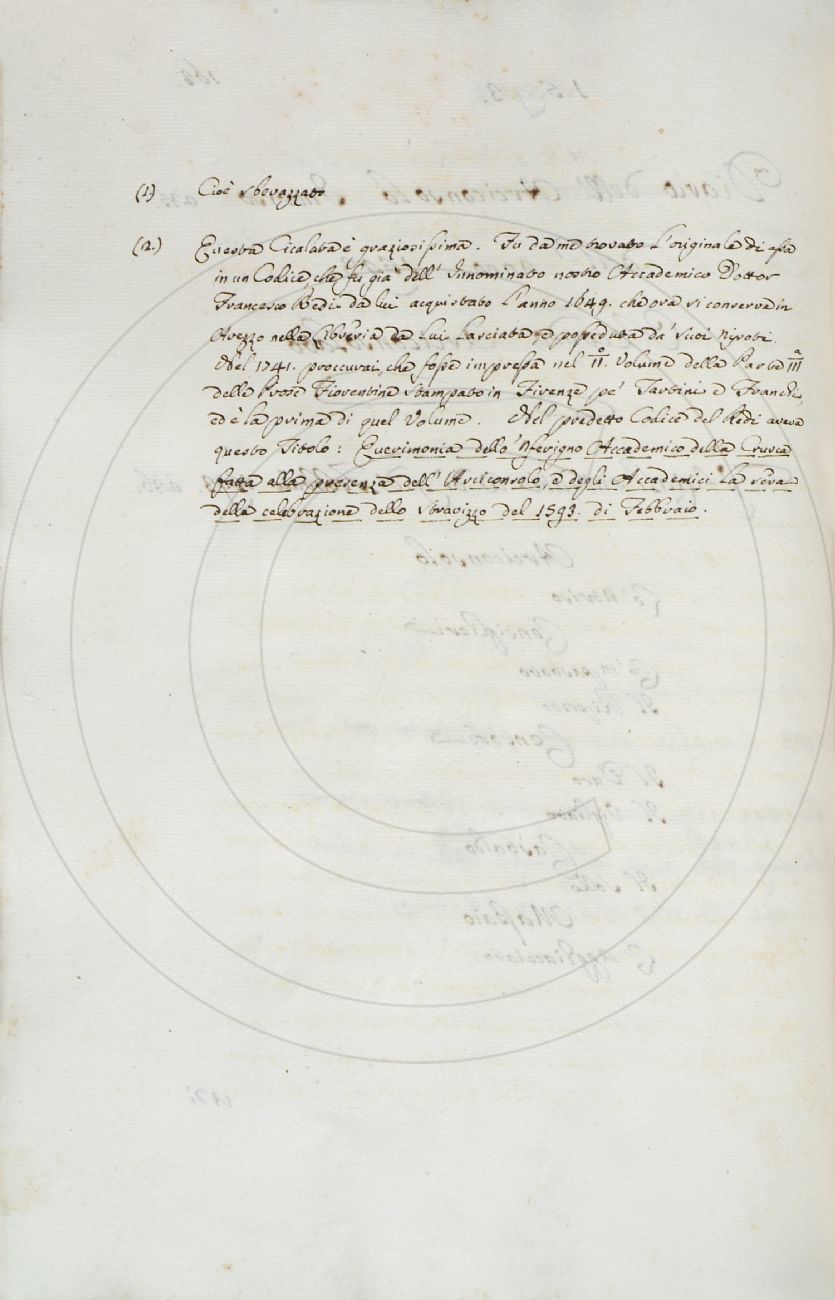 (1) Cioè sbevazzato
(2.) Questa Cicalata è graziosissima. Fu da me trovato l'originale di essa
in un Codice, che fu già dell' Innominato nostro Accademico Dottor
Francesco Redi da lui acquistato l'anno 1649. che ora si conserva in
Arezzo nella Libreria da lui lasciata, e posseduta da' suoi Nipoti.
Nel 1741. proccurai, che fosse impressa nel II.º Volume della Parte IIIª
delle Prose Fiorentine stampato in Firenze pe' Tartini, e Franchi,
ed è la prima di quel Volume. Nel predetto Codice del Redi aveva
questo Titolo: Querimonia dello 'Nferigno Accademico della Crusca
fatta alla presenza dell' Arciconsolo, e degli Accademici la sera
della celebrazione dello stravizzo del 1593. di Febbraio.